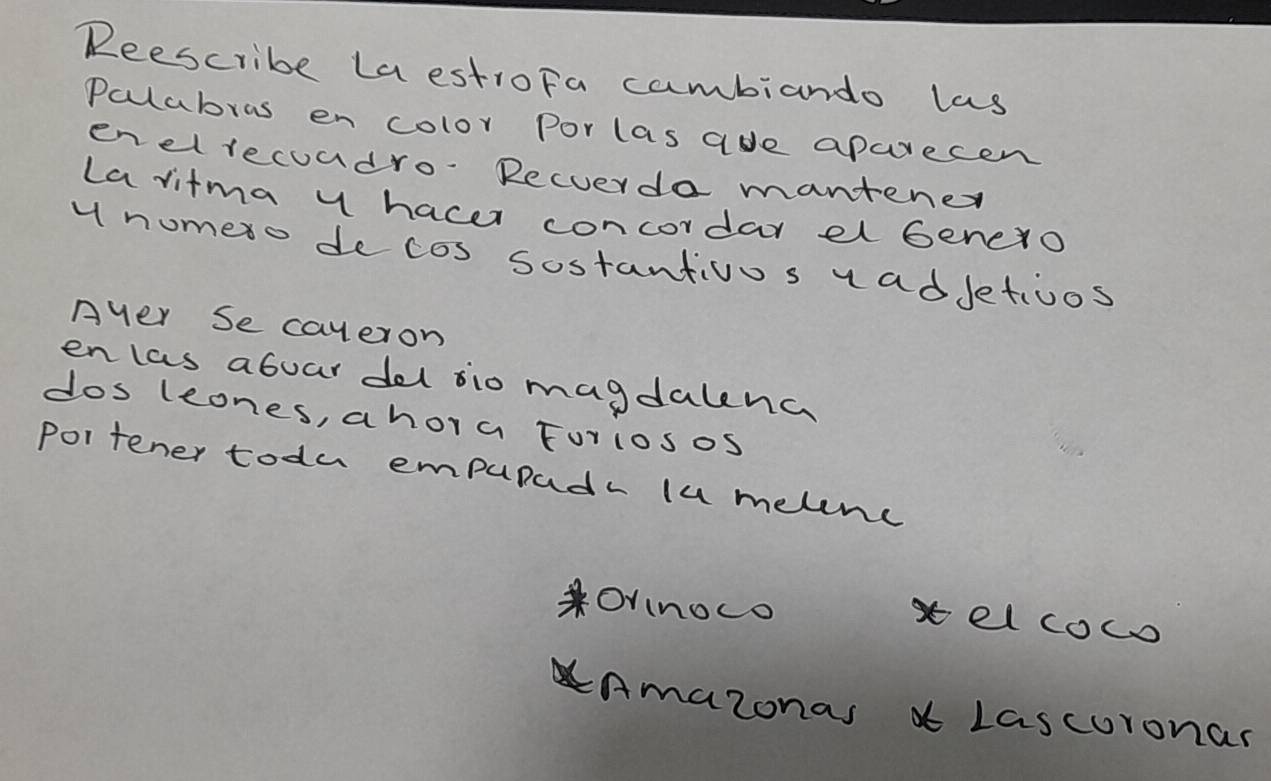 Reescribe La estrofa cambiando las
Palabras en color Por las que aparecen
en el recuadro. Recuerda mantener
La ritma y hacer concordar el Genero
y numero de los sustantivos y adjetivos
Ayer se cayeron
en las aguar del rio magdalena
dos leones, ahora Furiosos
Por tener toda empapada la melena
* Orinoco * el coco
* Amazonas * Las coronas